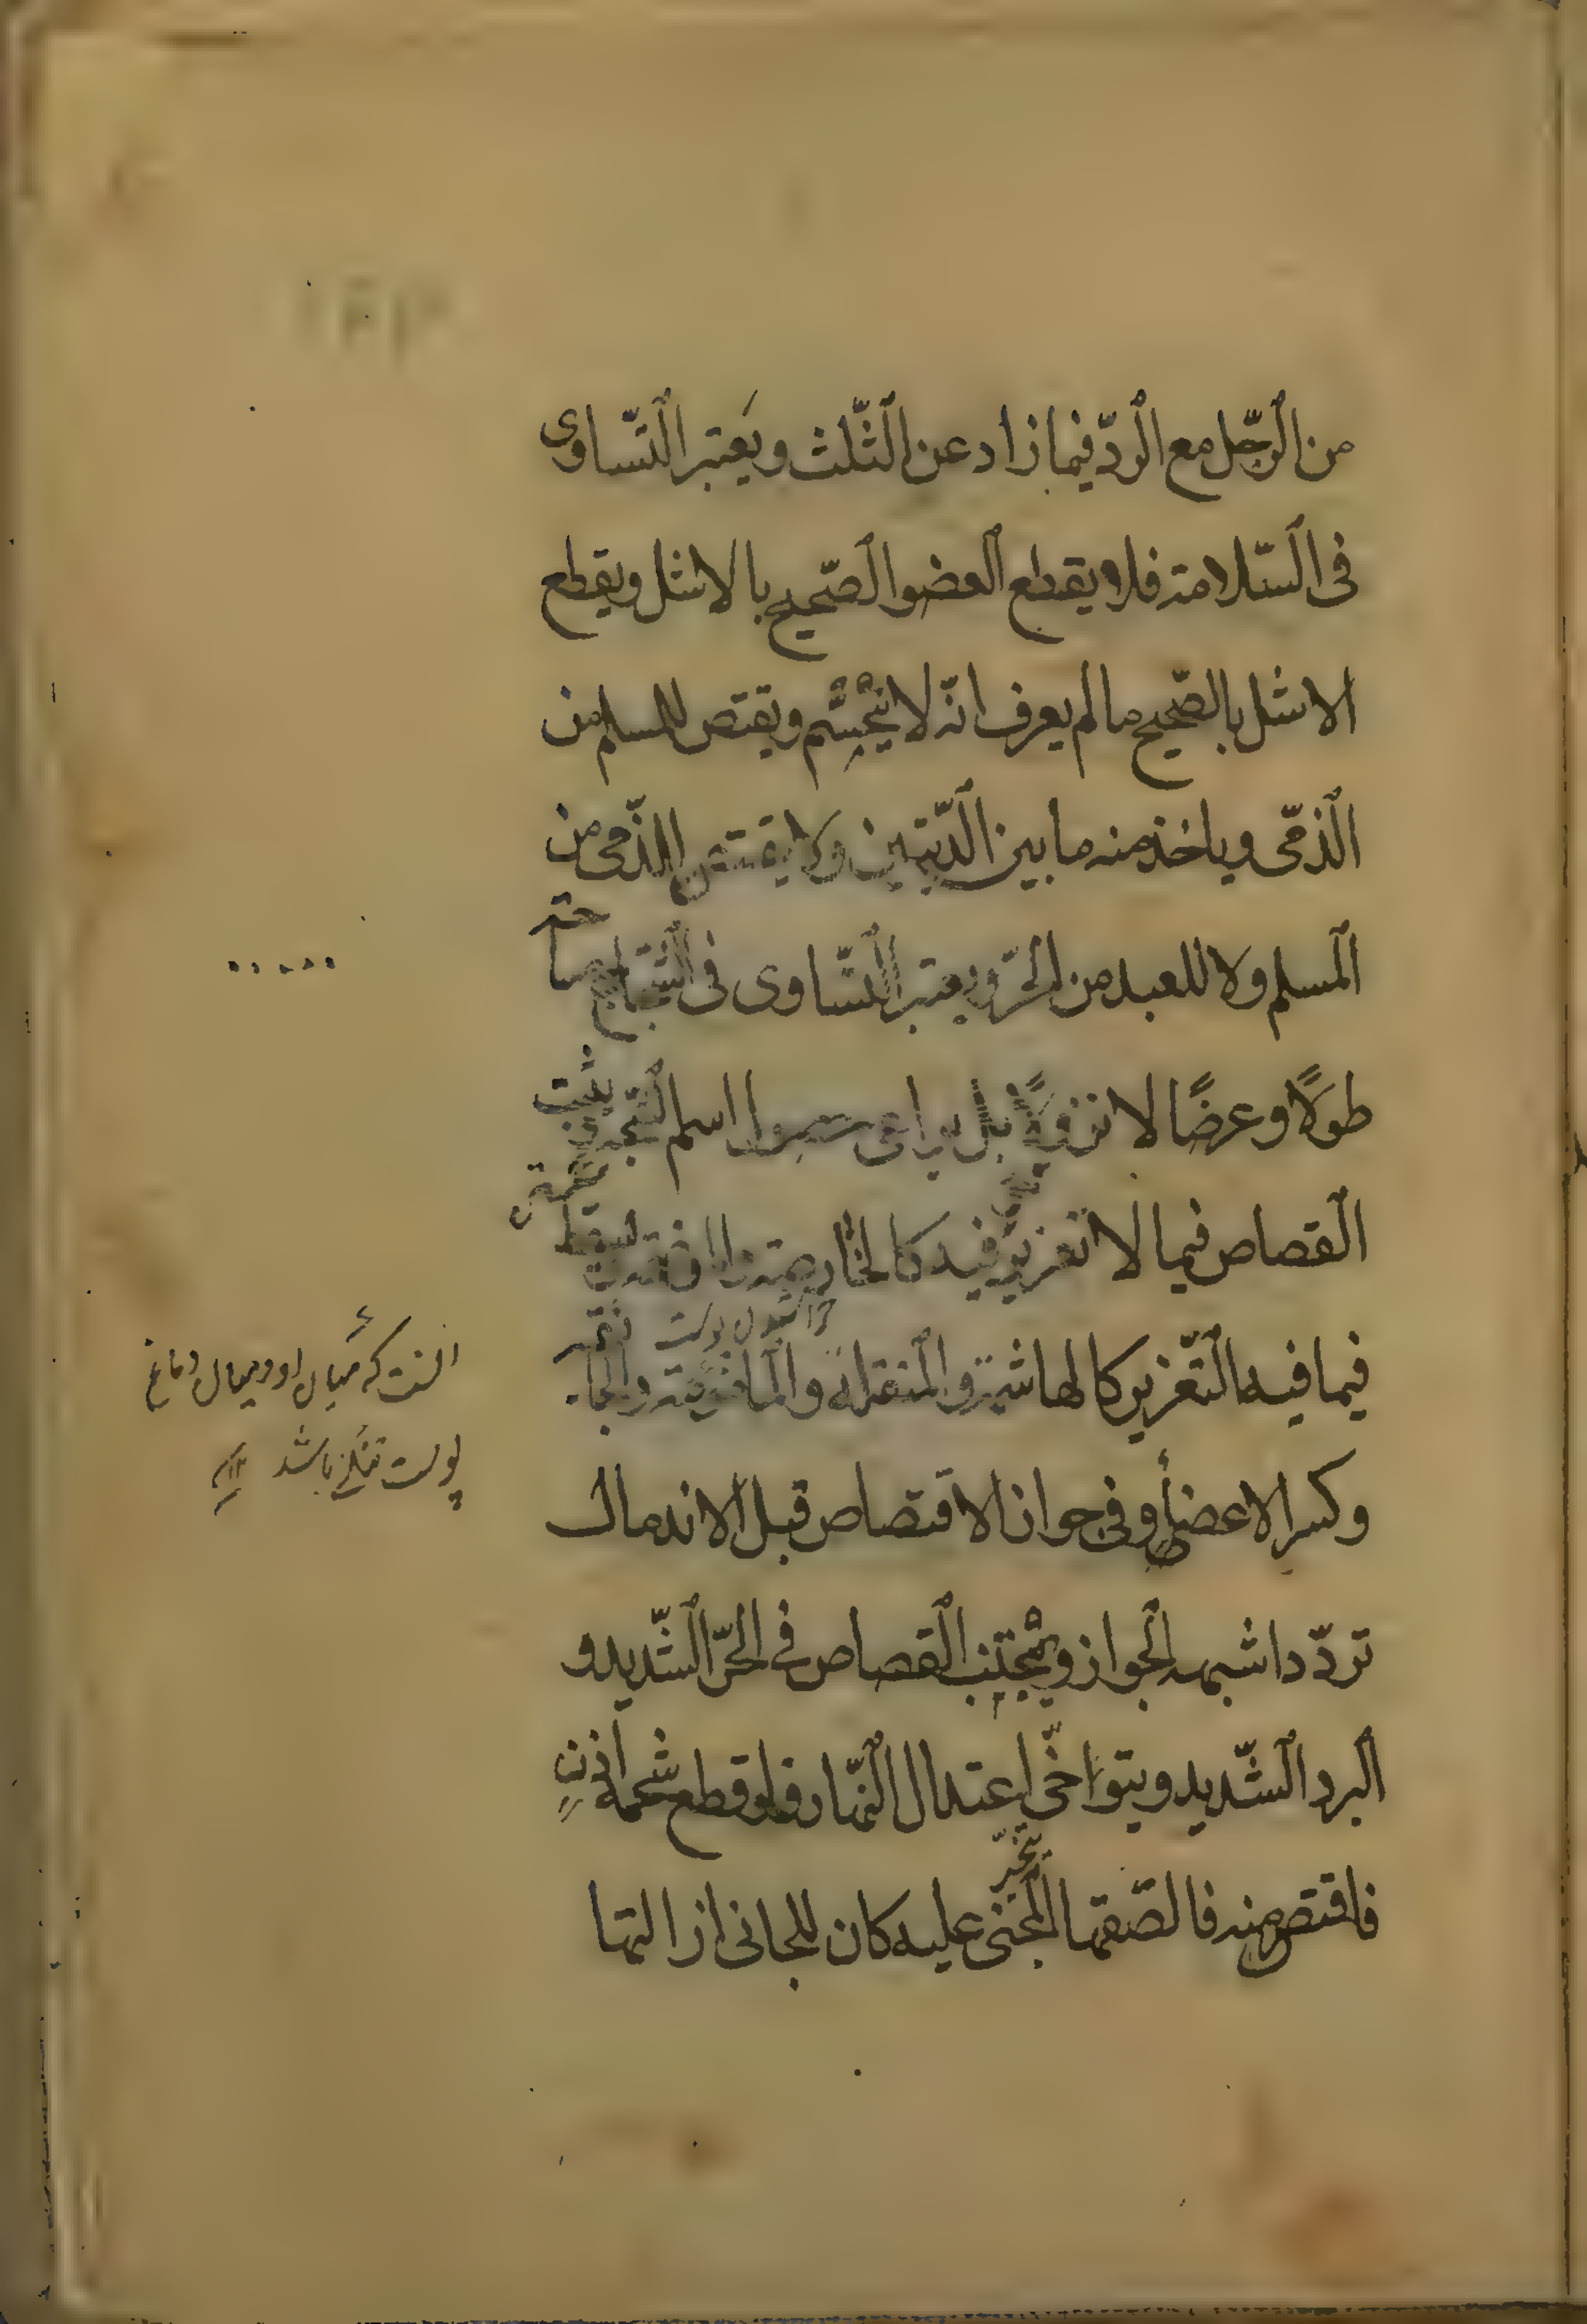 من الرّجل مع الردّ فیما زاد عن الثّلث و یَعتبر التّساوی
فی السّلامة فلا یقطع العضو الصّحیح بالاشل و یقطع
الاشل بالصّحیح ما لم یعرف انّه لا ینْحَسِم و یقتص للمسلم من
الذمّی و یاخذ منه ما بین الدّیتین ولا یقتص للذّمی من
المسلم ولا للعبد من الحرّ و یعتبر التّساوی فی الشّجاج مساحة
طولًا و عرضًا لا نزولًا بل یراعی حصول اسم الشّجة یثبت
القصاص فیما لا تعزیر فیه کالخارصة و
فیما فیه التّغزیر کالهاشمة و المنقلة و المأمومة و الجا
و کسر الاعضأ و فی جواز الاقتصاص قبل الاندمال
تردّد اشبهه الجواز و یُجْتنب القصاص فی الحرّ الشّدید و
البرد الشّدید و یتواخّی اعتدال النّهار فلو قطع شحمة اذنٍ
فاقتص منه فالصّقها المجنی علیه کان للجانی ازالتها
انست که میان او و میان دماغ
پوست تنکی باشد